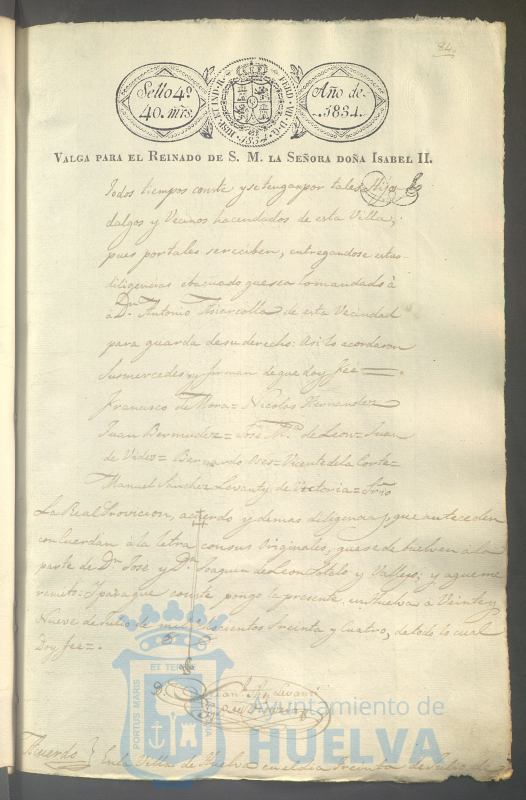 84.
Sello 4º
40. mrs.
HISP. ET IND. R. FERD. VII. D. G.
1834
Año de
1834.
VALGA PARA EL REINADO DE S. M. LA SEÑORA DOÑA ISABEL II.
todos tiempos conste y se tengan por tales Hijos
dalgos y Vecinos hacendados de esta Villa;
pues por tales se reciben, entregandose estas
diligencias evacuado que sea lo mandado à
à Dn. Antonio de esta Vecindad
para guarda de su derecho: Asi lo acordaron
sus mercedes y firman de que doy fee =
Francisco de Mora = Nicolas Hernandez
Juan Bermudez = José Ma. de Leon = Juan
de Vides = Bernardo = Vicente de la Corte =
Manuel Sanchez Levanty de Victoria = Srio
La Real Provicion, acuerdo y demas diligencias, que anteceden
concuerdan à la letra con sus Originales, que se debuelven a la
parte de Dn. José y Dn. Joaquin de Leon Sotelo y Vallejo, y a que me
remito: Y para que conste pongo la presente en Huelva à Veinte y
Nueve de Julio de mil ochosientos Treinta y Cuatro, de todo lo cual
Doy fee =.
Acuerdo } En la Villa de Huelva en el dia treinta de Julio de
PORTUS MARIS ET TERRAE
Ayuntamiento de
HUELVA